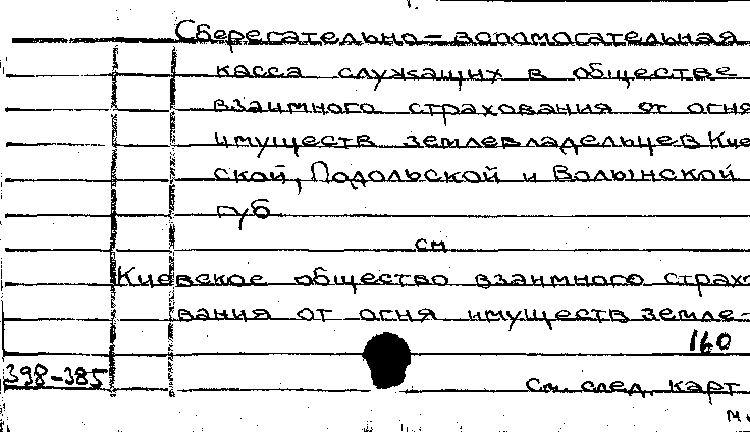 Сберегательно-вспомогательная
касса служащих в обществе
взаимного страхования от огня
имуществ землевладельцев Кие
ской, Подольской и Волынской
губ
см
Киевское общество взаимного страхо
вания от огня имуществ земле-
160
398-385 См. след. карт